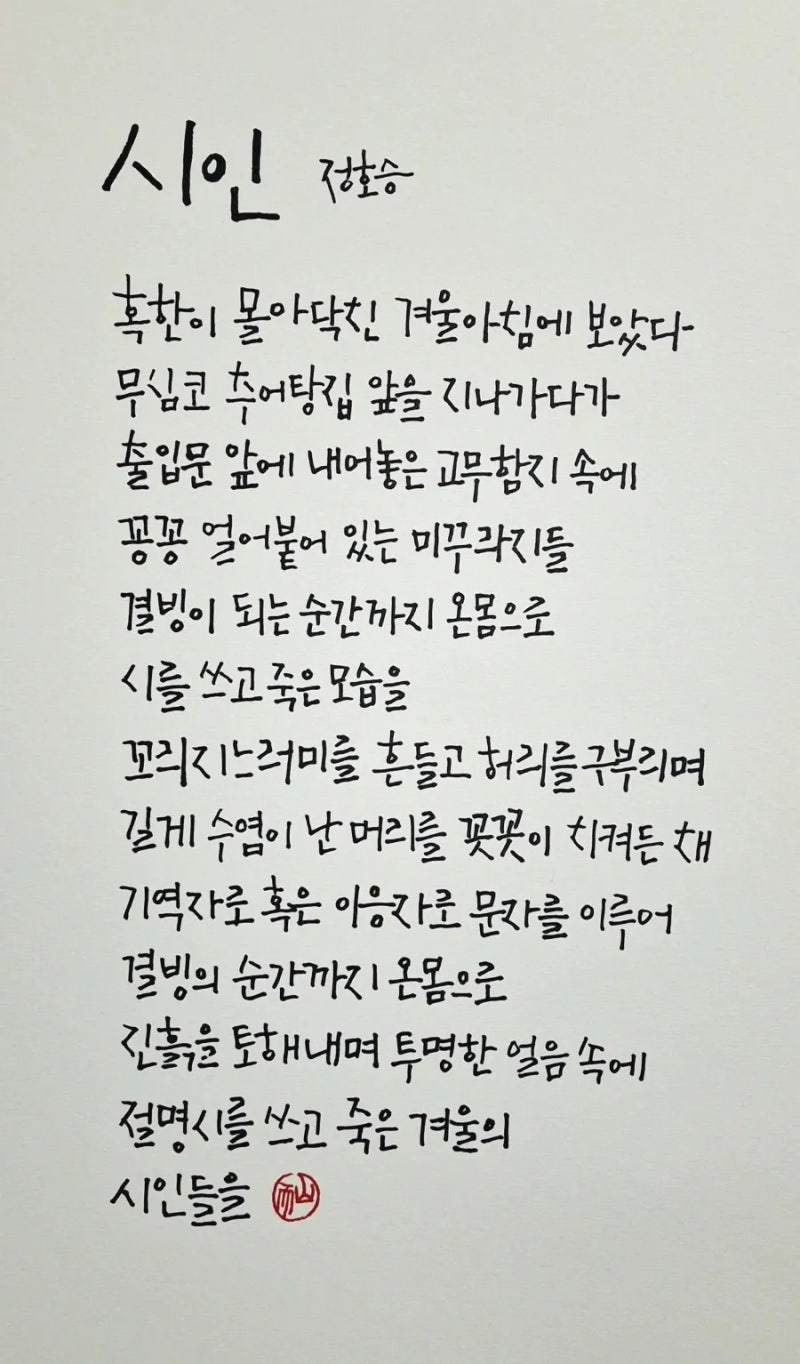 시인 정호승
혹한이 몰아닥친 겨울아침에 보았다
무심코 추어탕집 앞을 지나가다가
출입문 앞에 내어놓은 고무함지 속에
꽁꽁 얼어붙어 있는 미꾸라지들
결빙이 되는 순간까지 온몸으로
시를 쓰고 죽은 모습을
꼬리지느러미를 흔들고 허리를 구부리며
길게 수염이 난 머리를 꼿꼿이 치켜든 채
기역자로 혹은 이응자로 문자를 이루어
결빙의 순간까지 온몸으로
진흙을 토해내며 투명한 얼음 속에
절명시를 쓰고 죽은 겨울의
시인들을